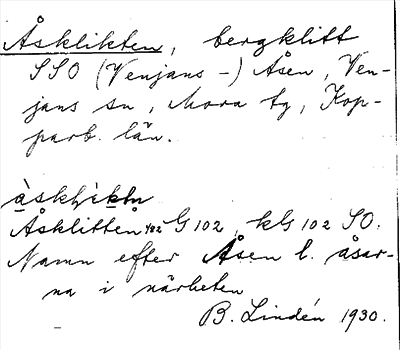 Åsklikten, bergklitt
SSO (Venjans -) Åsen, Ven-
jans sn, Mora tg, Kop-
parb. län.
Åsklitten 402 G 102, kG 102 SO.
Namn efter Åsen l. åsar-
na i närheten
B. Lindén 1930.